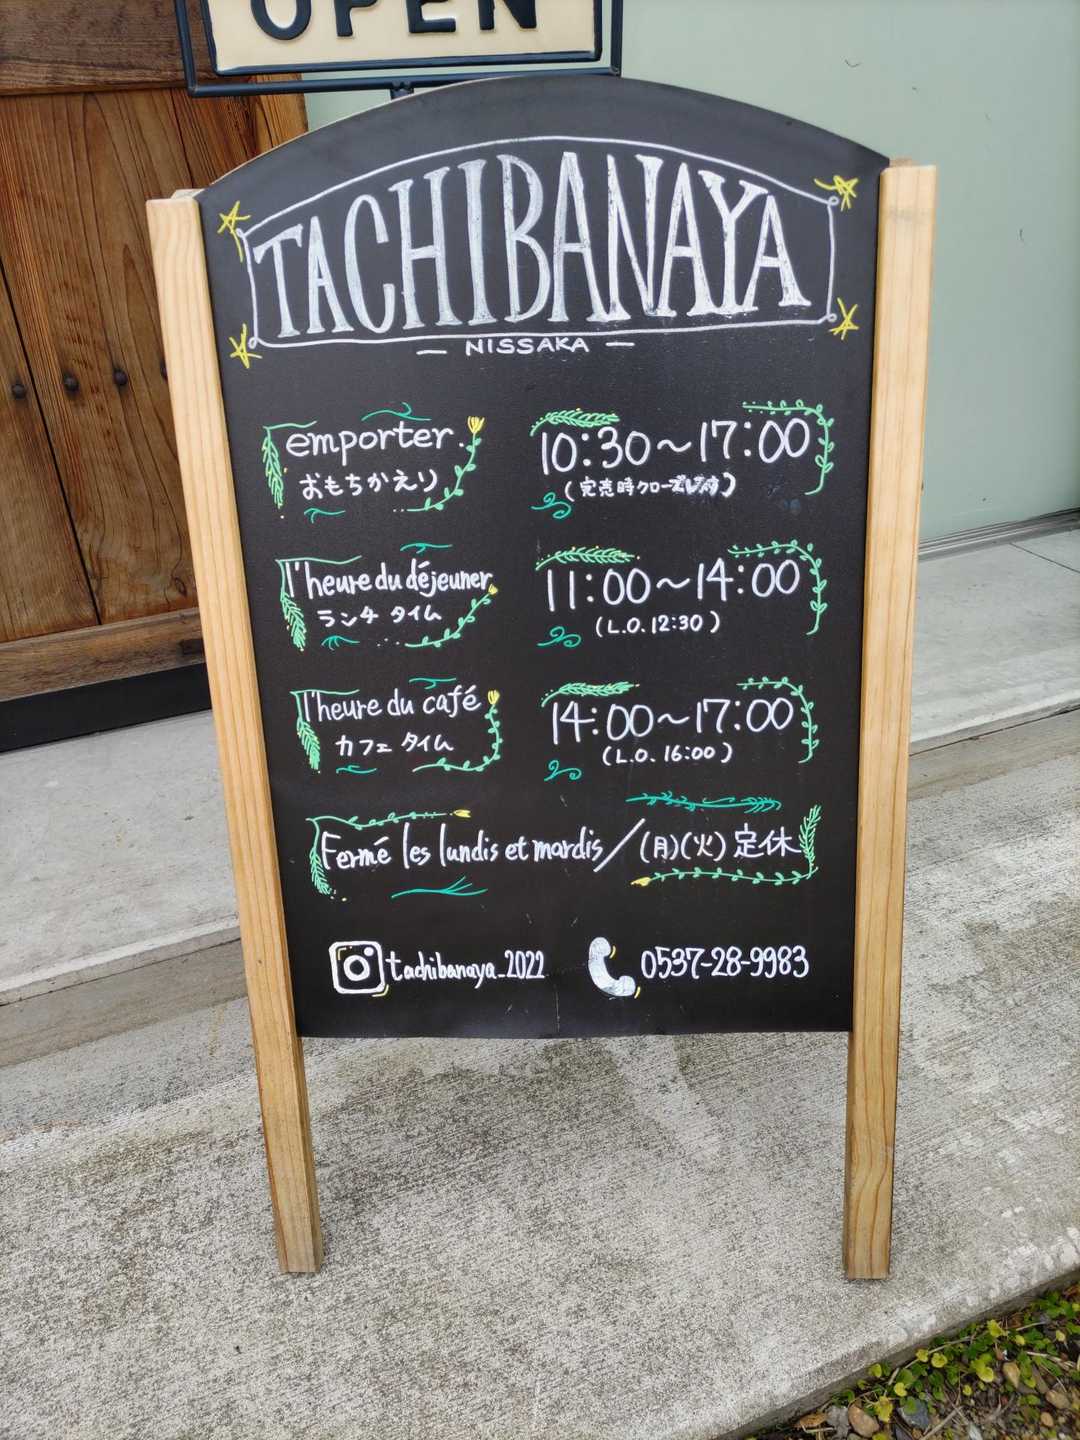 OPEN
TACHIBANAYA
NISSAKA
emporter.
おもちかえり
10:30～17:00
(完売時クローズ
l'heure du déjeuner
ランチ タイム
11:00～14:00
(L.O. 12:30)
l'heure du café
カフェ タイム
14:00～17:00
(L.O. 16:00)
Fermé les lundis et mardis/(月)(火)定休
tachibanaya_2022
0537-28-9983